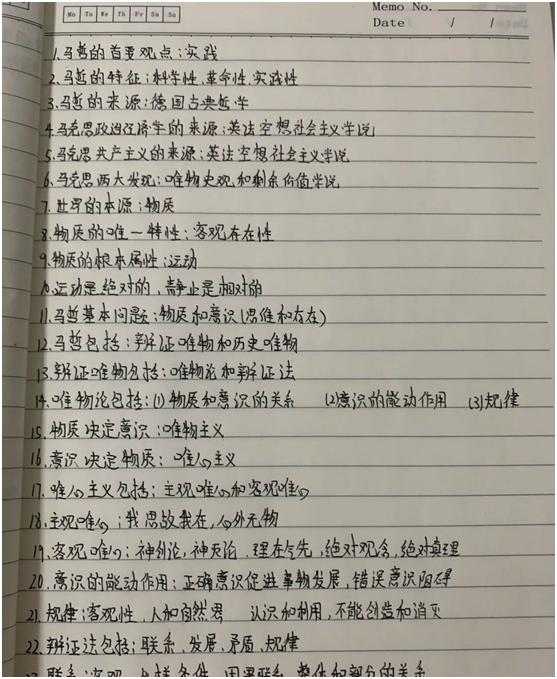 Mo Tu We Th Fr Sa Su
Memo No.
Date / /
1.马哲的首要观点:实践
2.马哲的特征:科学性.革命性.实践性
3.马哲的来源:德国古典哲学
4.马克思政治经济学的来源:英法空想社会主义学说
5.马克思共产主义的来源:英法空想社会主义学说
6.马克思两大发现:唯物史观和剩余价值学说
7.世界的本源:物质
8.物质的唯一特性:客观存在性
9.物质的根本属性:运动
10.运动是绝对的,静止是相对的
11.马哲基本问题:物质和意识(思维和存在)
12.马哲包括:辩证唯物和历史唯物
13.辩证唯物包括:唯物论和辩证法
14.唯物论包括:(1)物质和意识的关系 (2)意识的能动作用 (3)规律
15.物质决定意识:唯物主义
16.意识决定物质:唯心主义
17.唯心主义包括:主观唯心和客观唯心
18.主观唯心:我思故我在,心外无物
19.客观唯心:神创论,神灭论.理在气先,绝对观念,绝对真理
20.意识的能动作用:正确意识促进事物发展,错误意识阻碍
21.规律:客观性,人和自然界 认识和利用,不能创造和消灭
22.辩证法包括:联系.发展.矛盾.规律
23.联系:客观.多样.条件.因果联系.整体和部分的关系